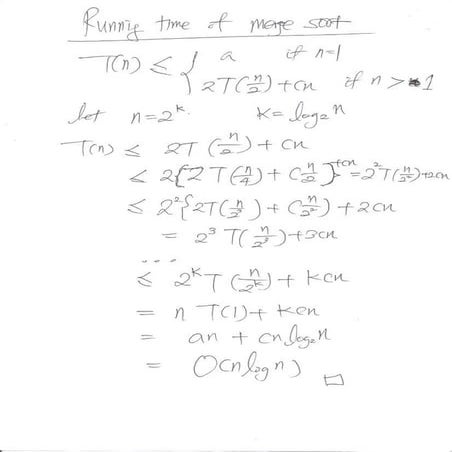 Runnig time of merge sort
T(n) ≤ { a if n=1
2T(n/2)+cn if n > 1
let n=2^k. k=log₂n
T(n) ≤ 2T(n/2) + cn
≤ 2{2T(n/4) + c n/2}+cn = 2²T(n/2²)+2cn
≤ 2²{2T(n/2³) + c(n/2²)} + 2cn
= 2³ T(n/2³)+3cn
...
≤ 2^k T(n/2^k) + kcn
= n T(1) + kcn
= an + cn log₂n
= O(n log n) □